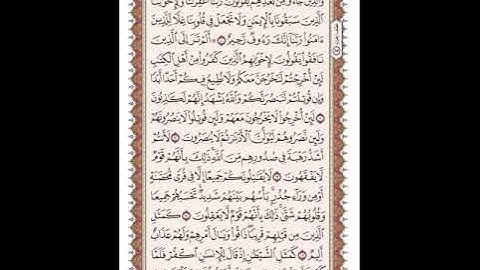 وَالَّذِينَ جَاءُو مِنْ بَعْدِهِمْ يَقُولُونَ رَبَّنَا اغْفِرْ لَنَا وَلِإِخْوَانِنَا
الَّذِينَ سَبَقُونَا بِالْإِيمَانِ وَلَا تَجْعَلْ فِي قُلُوبِنَا غِلًّا لِلَّذِينَ
ءَامَنُوا رَبَّنَا إِنَّكَ رَءُوفٌ رَحِيمٌ ۝ أَلَمْ تَرَ إِلَى الَّذِينَ
نَافَقُوا يَقُولُونَ لِإِخْوَانِهِمُ الَّذِينَ كَفَرُوا مِنْ أَهْلِ الْكِتَابِ
لَئِنْ أُخْرِجْتُمْ لَنَخْرُجَنَّ مَعَكُمْ وَلَا نُطِيعُ فِيكُمْ أَحَدًا أَبَدًا
وَإِنْ قُوتِلْتُمْ لَنَنْصُرَنَّكُمْ وَاللَّهُ يَشْهَدُ إِنَّهُمْ لَكَاذِبُونَ
۝ لَئِنْ أُخْرِجُوا لَا يَخْرُجُونَ مَعَهُمْ وَلَئِنْ قُوتِلُوا لَا يَنْصُرُونَهُمْ
وَلَئِنْ نَصَرُوهُمْ لَيُوَلُّنَّ الْأَدْبَارَ ثُمَّ لَا يُنْصَرُونَ ۝ لَأَنْتُمْ
أَشَدُّ رَهْبَةً فِي صُدُورِهِمْ مِنَ اللَّهِ ذَلِكَ بِأَنَّهُمْ قَوْمٌ
لَا يَفْقَهُونَ ۝ لَا يُقَاتِلُونَكُمْ جَمِيعًا إِلَّا فِي قُرًى مُحَصَّنَةٍ
أَوْ مِنْ وَرَاءِ جُدُرٍ بَأْسُهُمْ بَيْنَهُمْ شَدِيدٌ تَحْسَبُهُمْ جَمِيعًا
وَقُلُوبُهُمْ شَتَّى ذَلِكَ بِأَنَّهُمْ قَوْمٌ لَا يَعْقِلُونَ ۝ كَمَثَلِ
الَّذِينَ مِنْ قَبْلِهِمْ قَرِيبًا ذَاقُوا وَبَالَ أَمْرِهِمْ وَلَهُمْ عَذَابٌ
أَلِيمٌ ۝ كَمَثَلِ الشَّيْطَانِ إِذْ قَالَ لِلْإِنْسَانِ اكْفُرْ فَلَمَّا